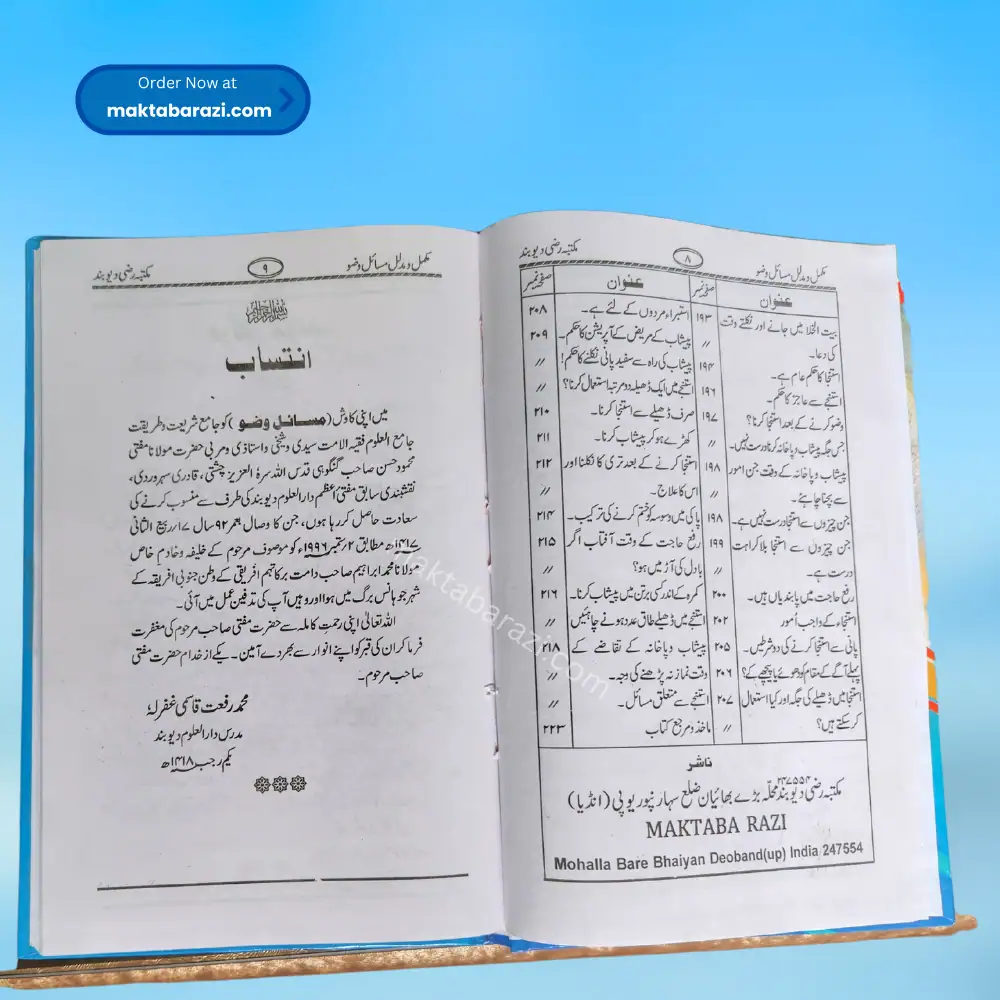 Order Now at
maktabarazi.com
مکمل و مدلل مسائل وضو
۸
مکتبہ رضی دیوبند
عنوان
صفحہ نمبر
عنوان
صفحہ نمبر
بیت الخلا میں جانے اور نکلتے وقت ۱۹۳
کی دعا۔ 〃
استنجا کا حکم عام ہے۔ ۱۹۴
استنجے سے عاجز کا حکم۔ ۱۹۶
وضو کرنے کے بعد استنجا کرنا؟ ۱۹۷
جس جگہ پیشاب و پاخانہ کرنا درست نہیں۔ 〃
پیشاب و پاخانہ کے وقت جن امور ۱۹۸
سے بچنا چاہئے۔ 〃
جن چیزوں سے استنجا درست نہیں ہے۔ ۱۹۸
جن چیزوں سے استنجا بلا کراہت ۱۹۹
درست ہے۔
رفع حاجت میں پابندیاں ہیں۔ ۲۰۰
استنجاء کے واجب امور ۲۰۲
پانی سے استنجا کرنے کی دو شرطیں۔ ۲۰۵
پہلے آگے کے مقام کو دھوئے یا پیچھے کے؟ ۲۰۶
استنجا میں ڈھیلے کی جگہ اور کیا استعمال ۲۰۷
کر سکتے ہیں؟ 〃
استبراء مردوں کے لئے ہے۔ ۲۰۸
پیشاب کے مریض کے آپریشن کا حکم۔ ۲۰۹
پیشاب کی راہ سے سفید پانی نکلنے کا حکم! 〃
استنجے میں ایک ڈھیلہ دو مرتبہ استعمال کرنا؟ 〃
صرف ڈھیلے سے استنجا کرنا۔ ۲۱۰
کھڑے ہو کر پیشاب کرنا۔ ۲۱۱
استنجا کرنے کے بعد تری کا نکلنا اور ۲۱۲
اس کا علاج۔ 〃
پاکی میں وسوسہ کو ختم کرنے کی ترکیب۔ ۲۱۴
رفع حاجت کے وقت آفتاب اگر ۲۱۵
بادل کی آڑ میں ہو؟ 〃
کمرہ کے اندر کسی برتن میں پیشاب کرنا۔ ۲۱۶
استنجے میں ڈھیلے طاق عدد ہونے چاہئیں 〃
پیشاب و پاخانہ کے تقاضے کے ۲۱۸
وقت نماز نہ پڑھنے کی وجہ۔ 〃
استنجے سے متعلق مسائل۔ 〃
ماخذ و مرجع کتاب ۲۲۳
ناشر
مکتبہ رضی دیوبند ۲۴۷۵۵۴ محلّہ بڑے بھائیان ضلع سہارنپور یوپی (انڈیا)
MAKTABA RAZI
Mohalla Bare Bhaiyan Deoband(up) India 247554
مکمل و مدلل مسائل وضو
۹
مکتبہ رضی دیوبند
بسم اللہ الرحمن الرحیم
انتساب
میں اپنی کاوش (مسائل وضو) کو جامع شریعت وطریقت
جامع العلوم فقیہ الامت سیدی و شیخی و استاذی و مربی حضرت مولانا مفتی
محمود حسن صاحب گنگوہی قدس اللہ سرہٗ العزیز چشتی، قادری سہروردی،
نقشبندی سابق مفتی اعظم دارالعلوم دیوبند کی طرف سے منسوب کرنے کی
سعادت حاصل کر رہا ہوں، جن کا وصال بعمر ۹۲ سال ۱۷/ربیع الثانی
۱۴۱۷ھ مطابق ۲/ستمبر ۱۹۹۶ء کو موصوف مرحوم کے خلیفہ و خادم خاص
مولانا محمد ابراہیم صاحب دامت برکاتہم افریقی کے وطن جنوبی افریقہ کے
شہر جوہانس برگ میں ہوا اور وہیں آپ کی تدفین عمل میں آئی۔
اللہ تعالیٰ اپنی رحمت کاملہ سے حضرت مفتی صاحب مرحوم کی مغفرت
فرما کر ان کی قبر کو اپنے انوار سے بھر دے آمین۔ یکے از خدام حضرت مفتی
صاحب مرحوم۔
محمد رفعت قاسمی غفرلہٗ
مدرس دارالعلوم دیوبند
یکم رجب ۱۴۱۸ھ
maktabarazi.com